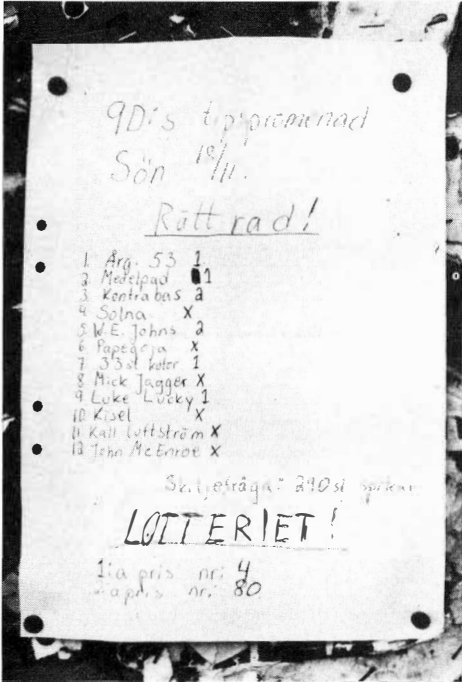 9D:s tipspromenad
Sön 18/11.
Rätt rad!
1 Årg. 53 1
2 Medelpad 1
3 Kontrabas 2
4 Solna X
5 W.E. Johns 2
6 Papegoja X
7 33 st kulor 1
8 Mick Jagger X
9 Luke Lucky 1
10 Kisel X
11 Kall luftström X
12 John McEnroe X
Skiljefråga: 290 st
LOTTERIET!
1:a pris nr: 4
2:a pris nr: 80